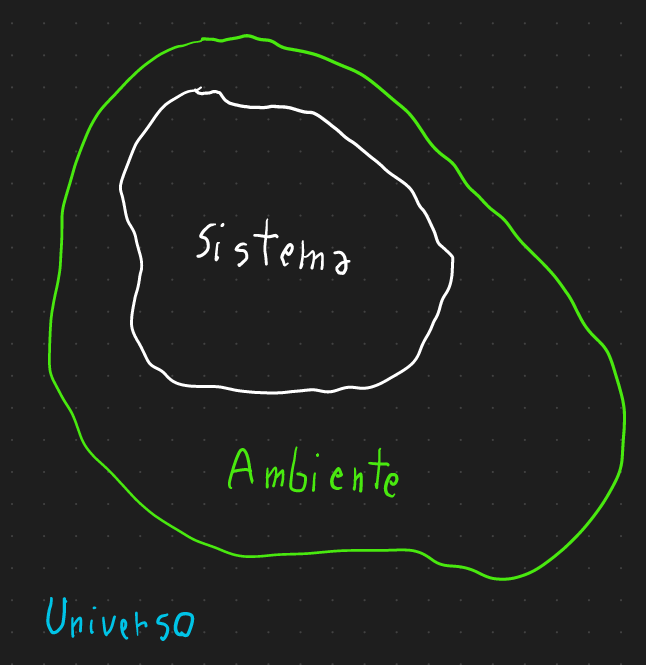 Sistema
Ambiente
Universo